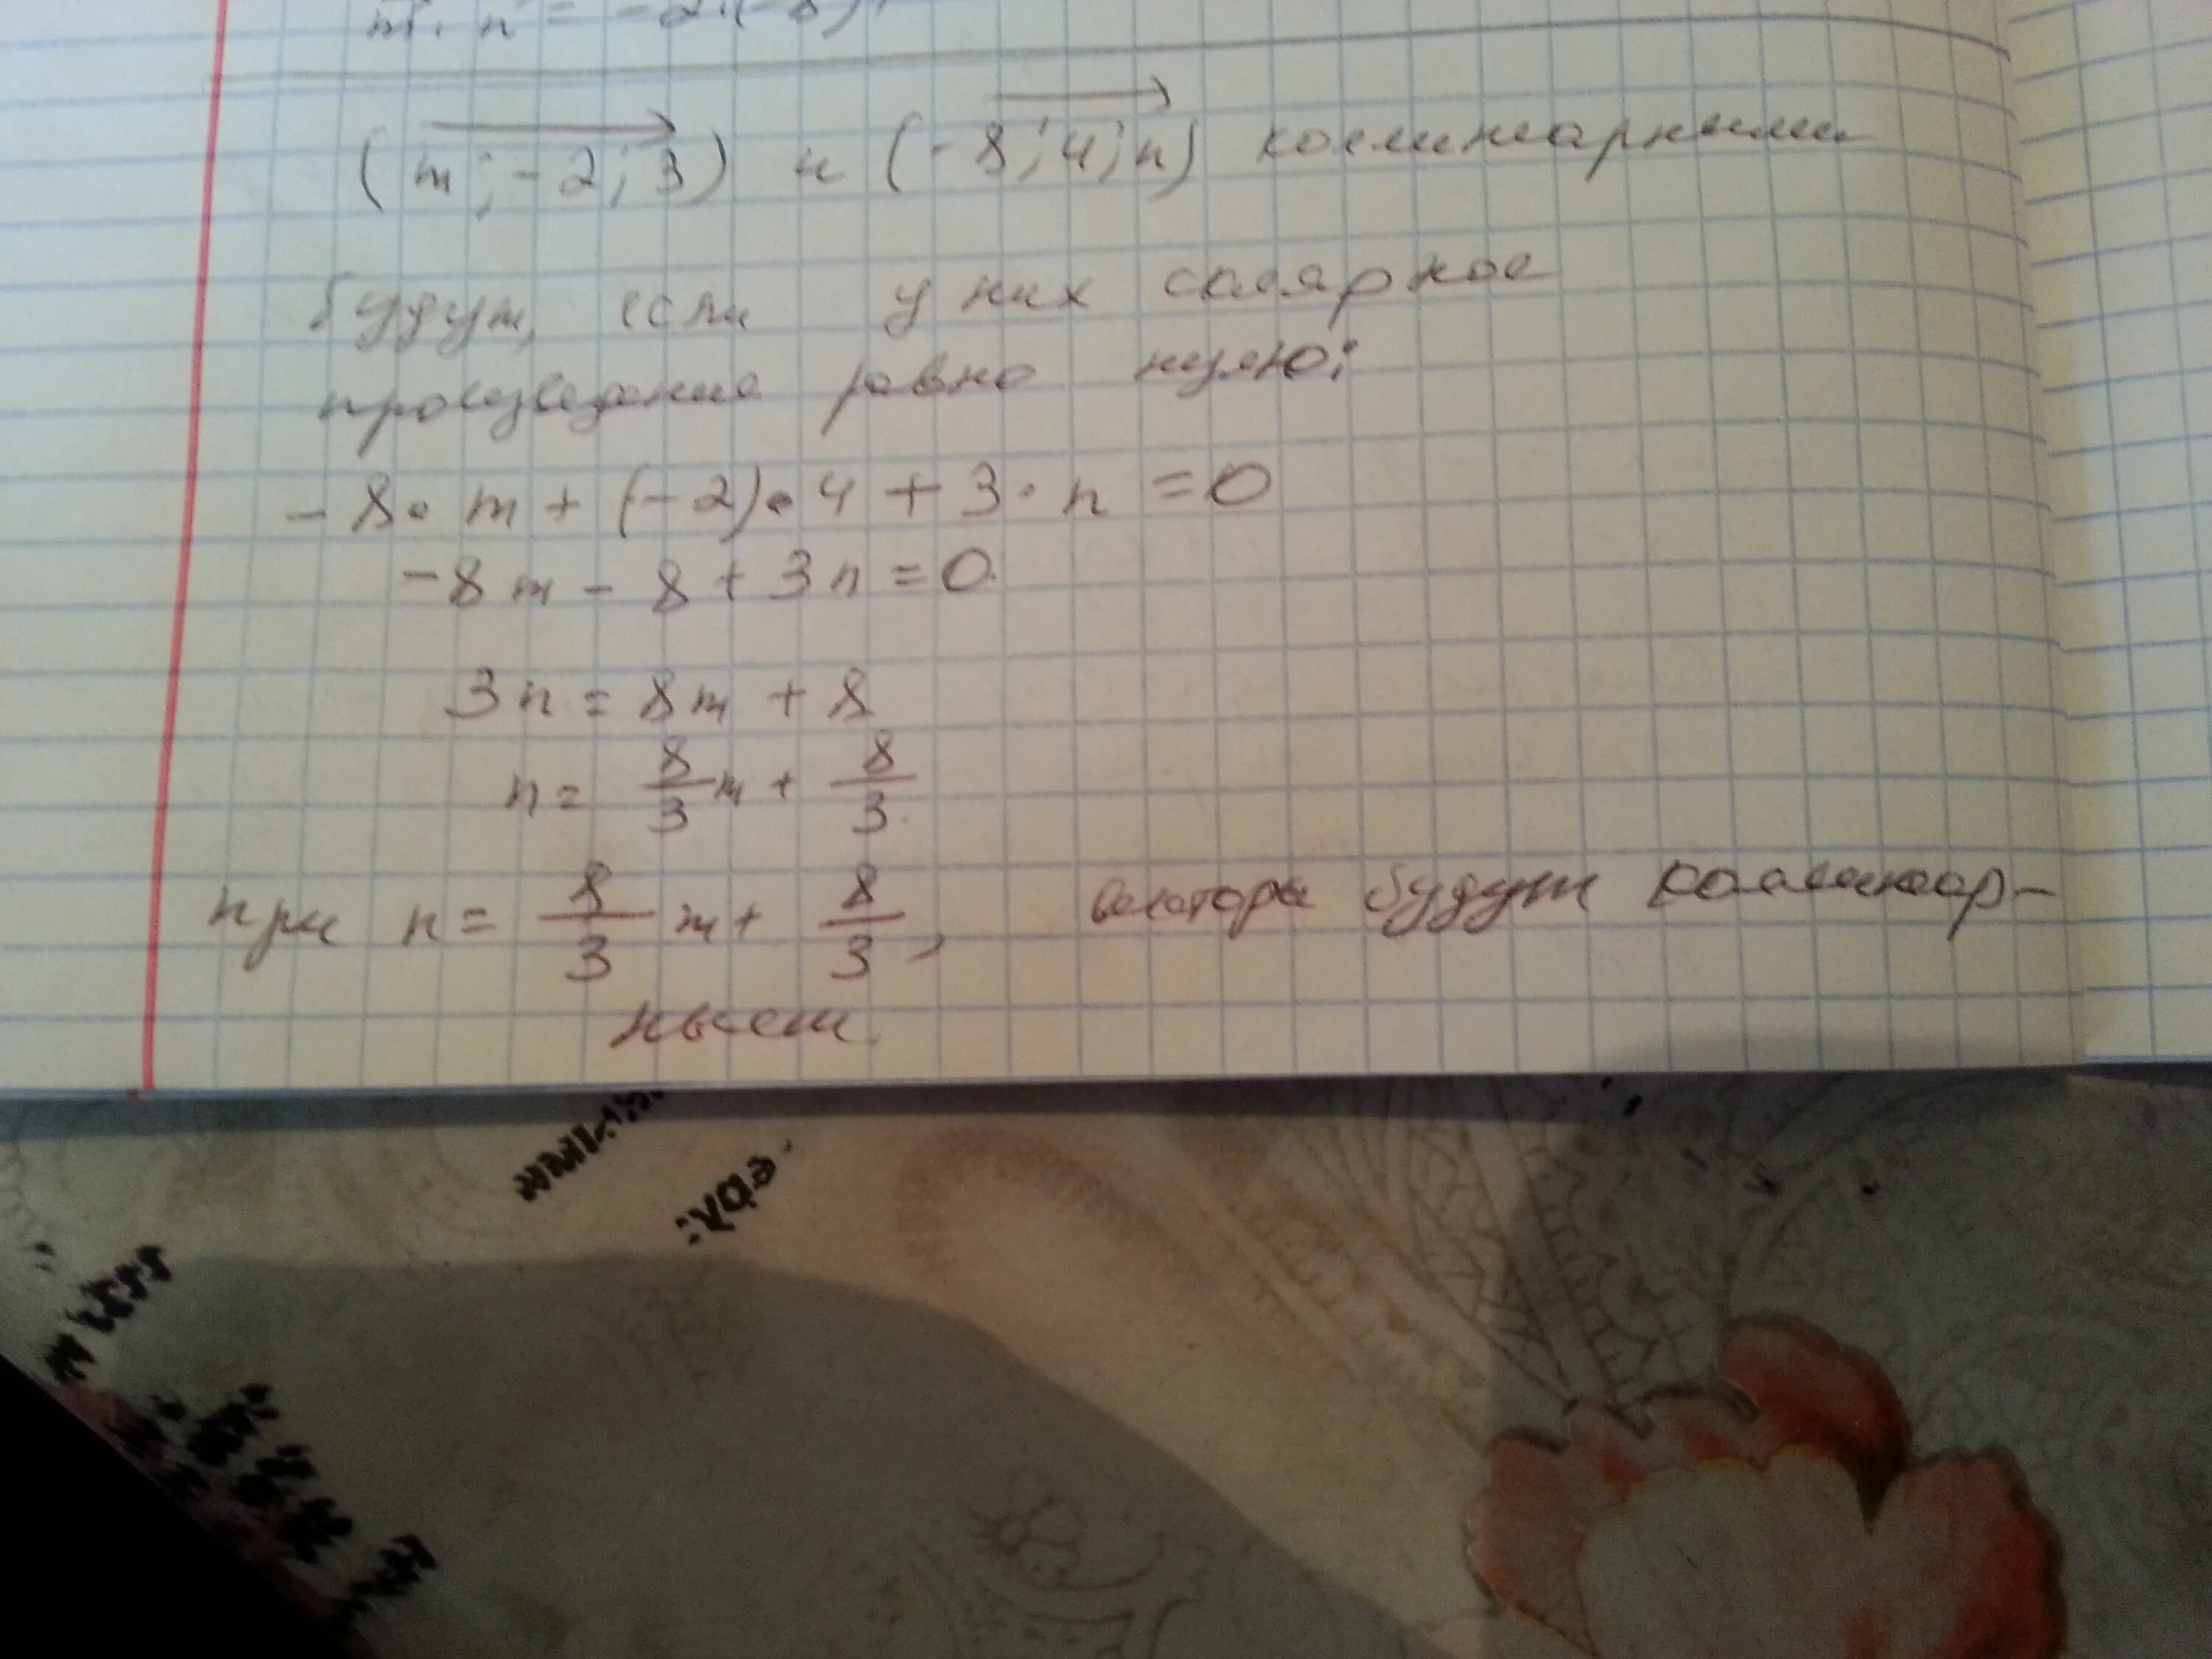 m · n = -2 · (-8)
(m; -2; 3) и (-8; 4; n) коллинеарными
будут, если у них скалярное
произведение равно нулю:
-8 · m + (-2) · 4 + 3 · n = 0
-8m - 8 + 3n = 0
3n = 8m + 8
n = 8/3 m + 8/3
при n = 8/3 m + 8/3, векторы будут коллинеар-
ными